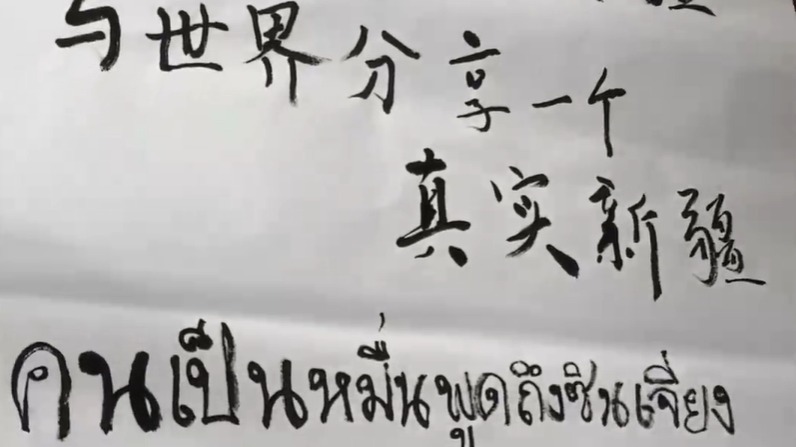 与世界分享一个
真实新疆
คนเป็นหมื่นพูดถึงซินเจี่ยง